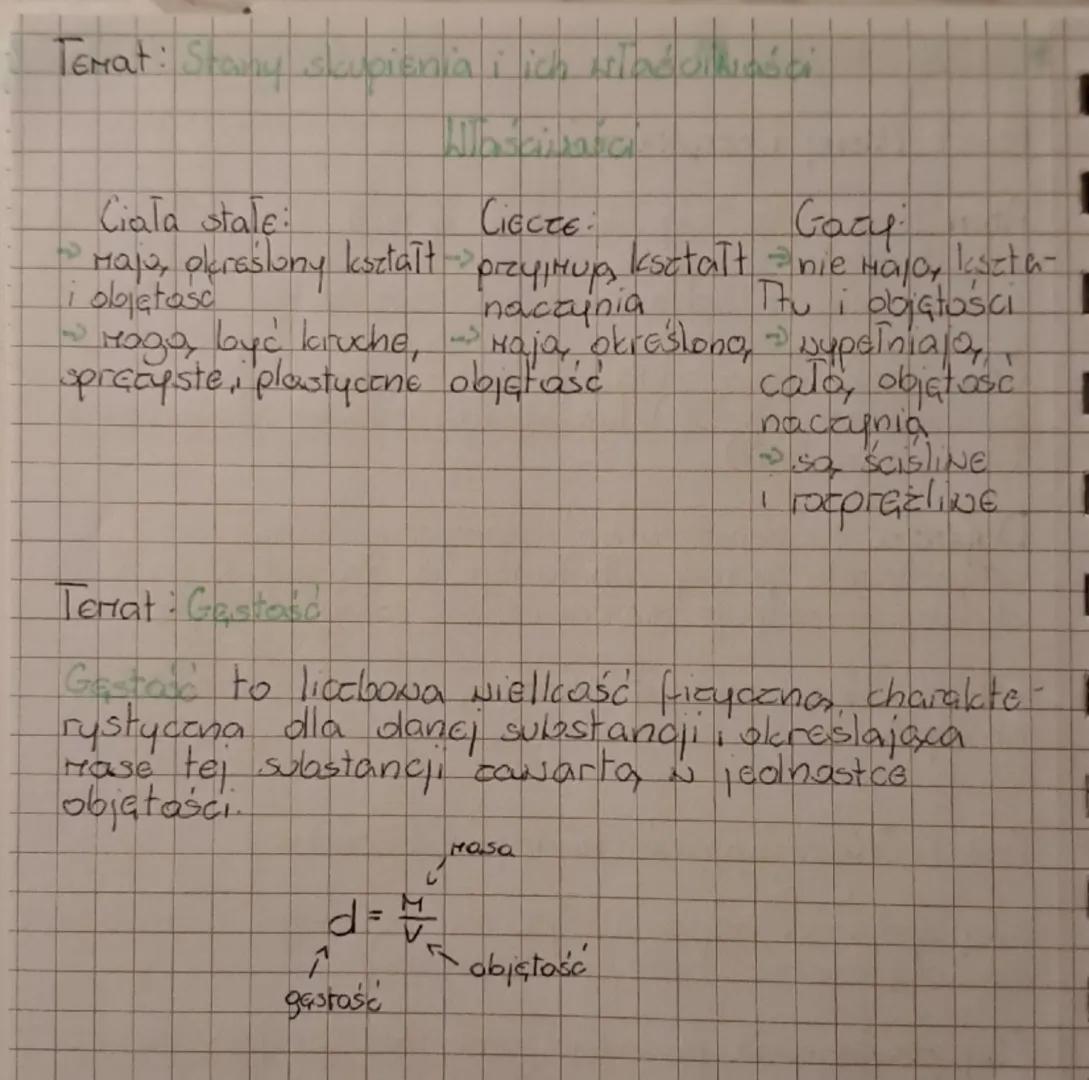 Temat: Stany skupienia i ich właściwości
Właściwości
Ciała stałe:
→ mają określony kształt
i objętość
→ mogą być kruche,
sprężyste i plastyczne
Ciecze:
→ przyjmują kształt
naczynia
→ mają określoną
objętość
Gazy:
→ nie mają kszta-
łtu i objętości
→ wypełniają
całą objętość
naczynia
→ są ściśliwe
i rozprężliwe
Temat: Gęstość
Gęstość to liczbowa wielkość fizyczna charakte-
rystyczna dla danej substancji i określająca
mase tej substancji zawartą w jednostce
objętości.
masa
d = m/V
objętość
gęstość